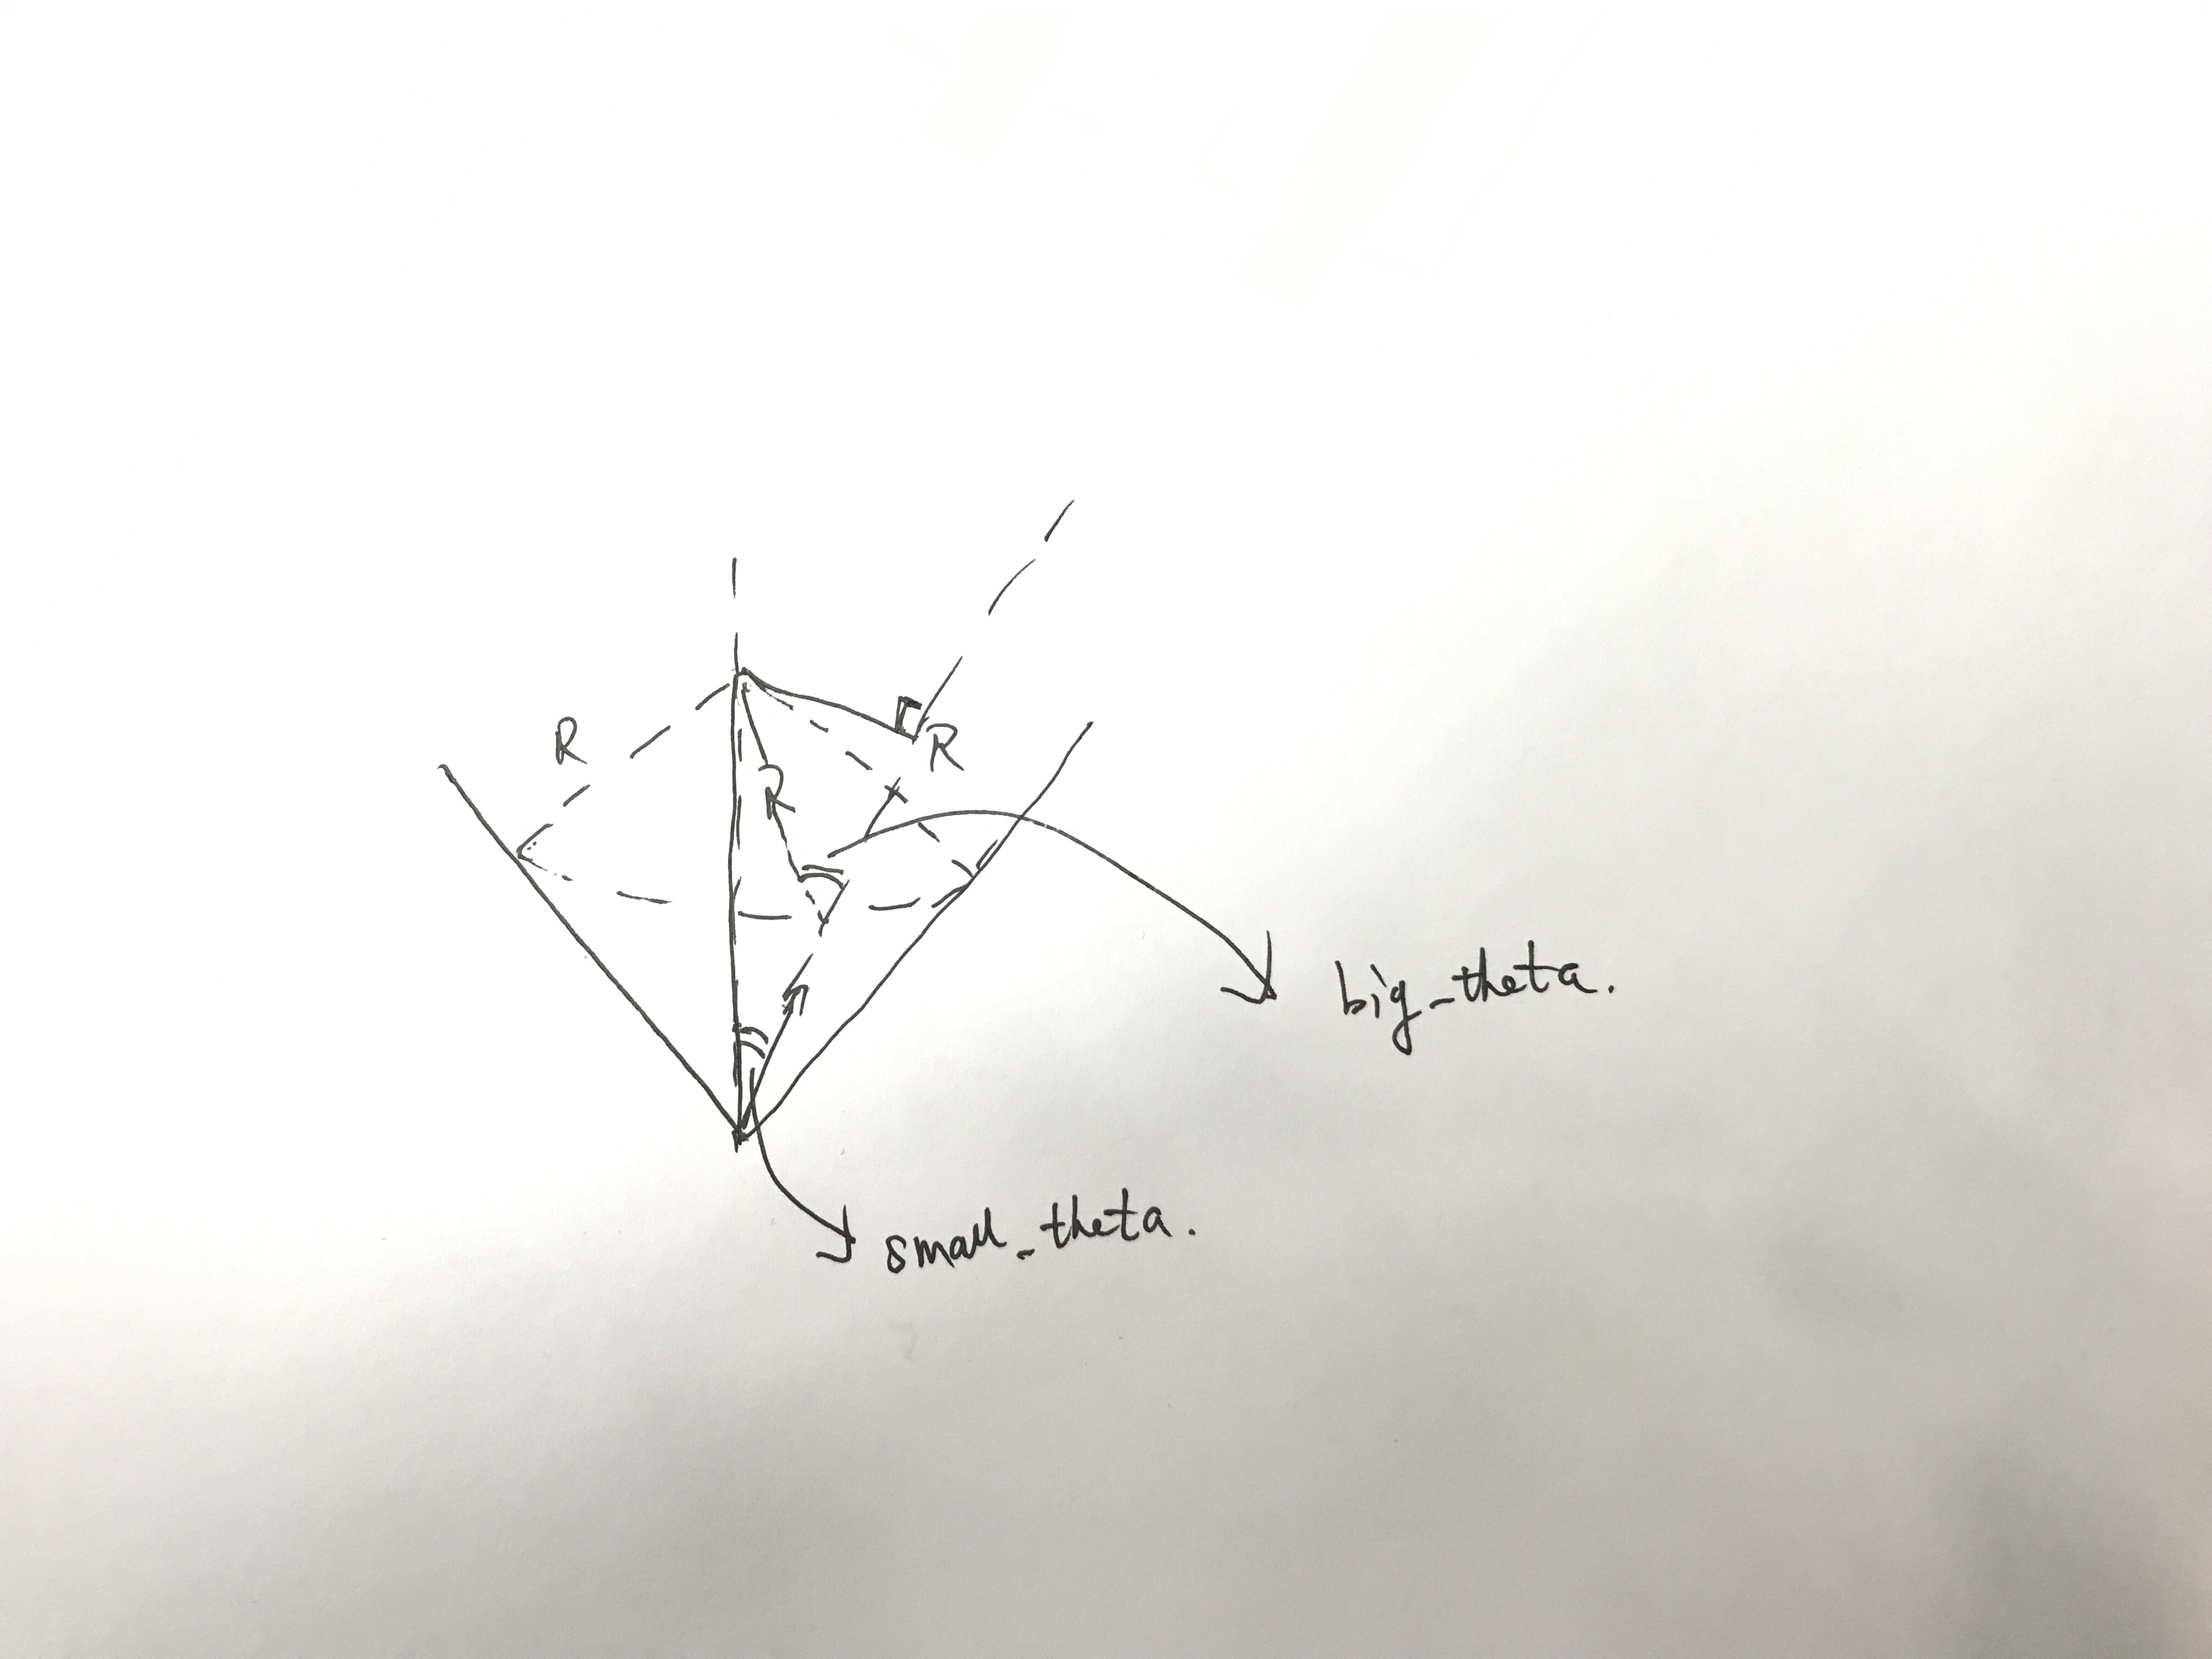 R
R
R
big_theta.
small_theta.